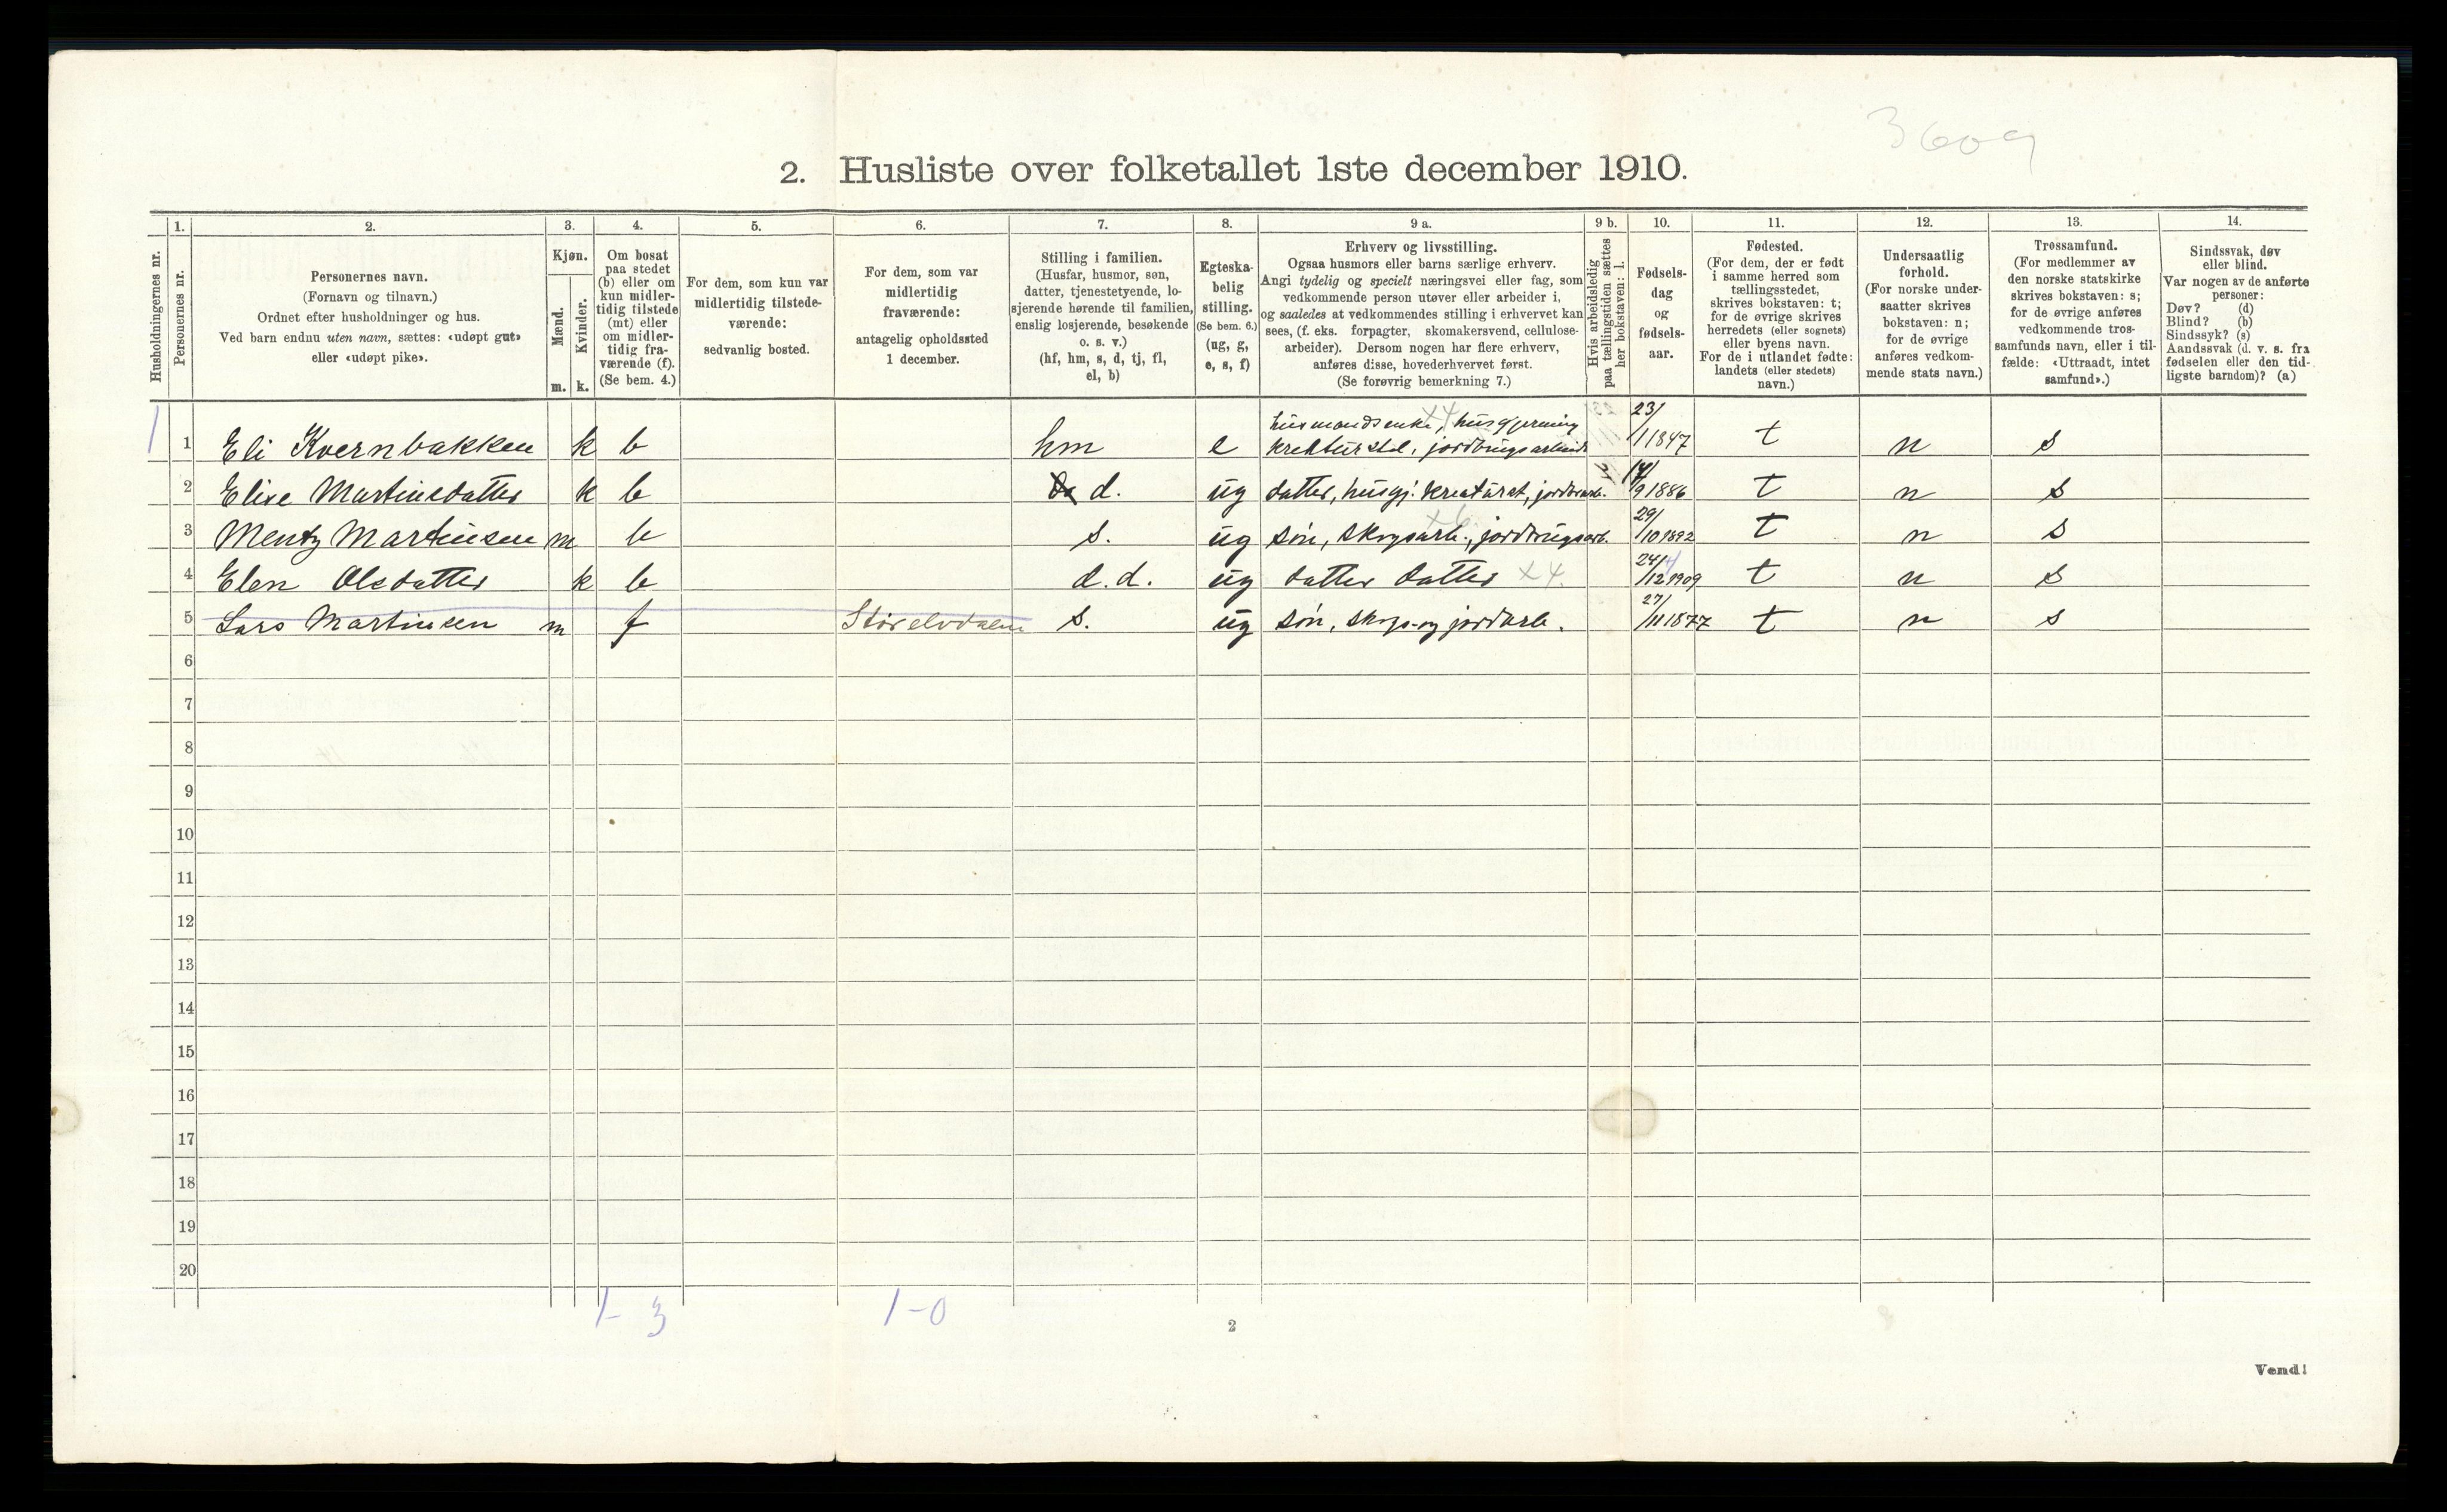 3609
2. Husliste over folketallet 1ste december 1910.
Husholdningernes nr.
1.
Personernes nr.
2.
Personernes navn.
(Fornavn og tilnavn.)
Ordnet efter husholdninger og hus.
Ved barn endnu uten navn, sættes: «udøpt gut»
eller «udøpt pike».
3.
Kjøn.
Mænd.
m.
Kvinder.
k.
4.
Om bosat
paa stedet
(b) eller om
kun midler-
tidig tilstede
(mt) eller
om midler-
tidig fra-
værende (f).
(Se bem. 4.)
5.
For dem, som kun var
midlertidig tilstede-
værende:
sedvanlig bosted.
6.
For dem, som var
midlertidig
fraværende:
antagelig opholdssted
1 december.
7.
Stilling i familien.
(Husfar, husmor, søn,
datter, tjenestetyende, lo-
sjerende hørende til familien,
enslig losjerende, besøkende
o. s. v.)
(hf, hm, s, d, tj, fl,
el, b)
8.
Egteska-
belig
stilling.
(Se bem. 6.)
(ug, g,
e, s, f)
9 a.
Erhverv og livsstilling.
Ogsaa husmors eller barns særlige erhverv.
Angi tydelig og specielt næringsvei eller fag, som
vedkommende person utøver eller arbeider i,
og saaledes at vedkommendes stilling i erhvervet kan
sees, (f. eks. forpagter, skomakersvend, cellulose-
arbeider). Dersom nogen har flere erhverv,
anføres disse, hovederhvervet først.
(Se forøvrig bemerkning 7.)
9 b.
Hvis arbeidsledig
paa tællingstiden sættes
her bokstaven: l.
10.
Fødsels-
dag
og
fødsels-
aar.
11.
Fødested.
(For dem, der er født
i samme herred som
tællingsstedet,
skrives bokstaven: t;
for de øvrige skrives
herredets (eller sognets)
eller byens navn.
For de i utlandet fødte:
landets (eller stedets)
navn.)
12.
Undersaatlig
forhold.
(For norske under-
saatter skrives
bokstaven: n;
for de øvrige
anføres vedkom-
mende stats navn.)
13.
Trossamfund.
(For medlemmer av
den norske statskirke
skrives bokstaven: s;
for de øvrige anføres
vedkommende tros-
samfunds navn, eller i til-
fælde: «Uttraadt, intet
samfund».)
14.
Sindssvak, døv
eller blind.
Var nogen av de anførte
personer:
Døv? (d)
Blind? (b)
Sindssyk? (s)
Aandssvak (d. v. s. fra
fødselen eller den tid-
ligste barndom)? (a)
1 1 Eli Kvernbakken k b hm e husmandsenke, husgjerning x4
kreaturstel, jordbrugsarbeide 23/1 1847 t n s
2 Elise Martinsdatter k b d. ug datter, husgj. kreaturst, jordbrarb. 14/9 1886 t n s
3 Mentz Martinsen m b s. ug søn, skogsarb., jordbrugsarb. x6. 29/10 1892 t n s
4 Elen Olsdatter k b d.d. ug datter datter x4. 24/12 1909 t n s
5 Lars Martinsen m f Storelvdalen s. ug søn, skogs- og jordarb. 27/11 1877 t n s
6
7
8
9
10
11
12
13
14
15
16
17
18
19
20
1-3 1-0
2
Vend!